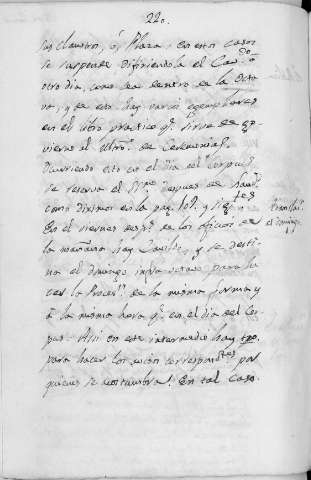 220.
sus claustros, ó Plaza: en estos casos
se suspende difiriendolo á el Cavdo. ó
otro dia, como sea dentro de la Octa
va, y de esto hay varios egemplares
en el libro practico qe. sirve de go
vierno al Mtro. de Ceremonias.
Ocurriendo esto en el dia del Corpus
se reserva el Ssmo. despues de
como diximos en la pag. 107. y sigtes.
En el viernes desps. de los oficios de
la mañana hay Cavildo, y se desti
na el domingo infra octavo para ha
cer la Procesn. de la misma forma y
á la misma hora qe. en el dia del Cor
pus. Asi en este intermedio hay tpo.
para hacer los avisos correspondtes por
quienes se acostumbra. En tal caso.
el domingo.